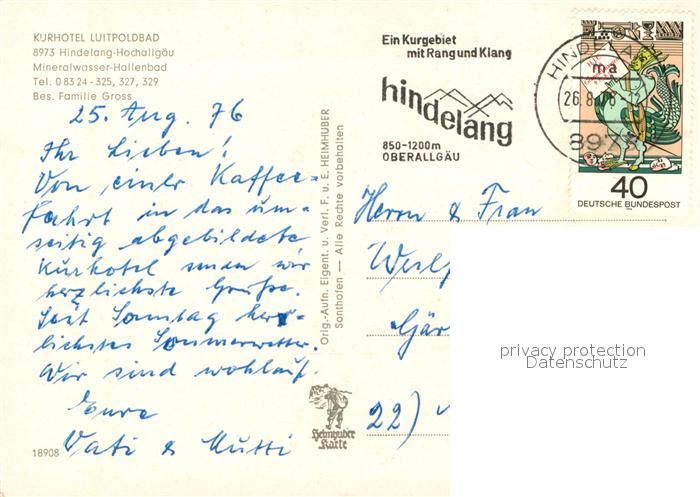 KURHOTEL LUITPOLDBAD
8973 Hindelang-Hochallgäu
Mineralwasser-Hallenbad
Tel. 0 83 24 - 325, 327, 329
Bes. Familie Gross
25. Aug. 76
Ihr Lieben!
Von einer Kaffee-
fahrt in das um-
seitig abgebildete
Kurhotel senden wir
herzlichste Grüße.
Seit Sonntag herr-
lichstes Sommerwetter.
Wir sind wohlauf.
Eure
Vati & Mutti
18908
Orig.-Aufn. Eigent. u. Verl. F. u. E. HEIMHUBER
Sonthofen — Alle Rechte vorbehalten
Heimhuber
Karte
Ein Kurgebiet
mit Rang und Klang
hindelang
850-1200m
OBERALLGÄU
HINDELANG
ma
26.8.76
8973
40
DEUTSCHE BUNDESPOST
Herrn & Frau
Gär
22)
privacy protection
Datenschutz